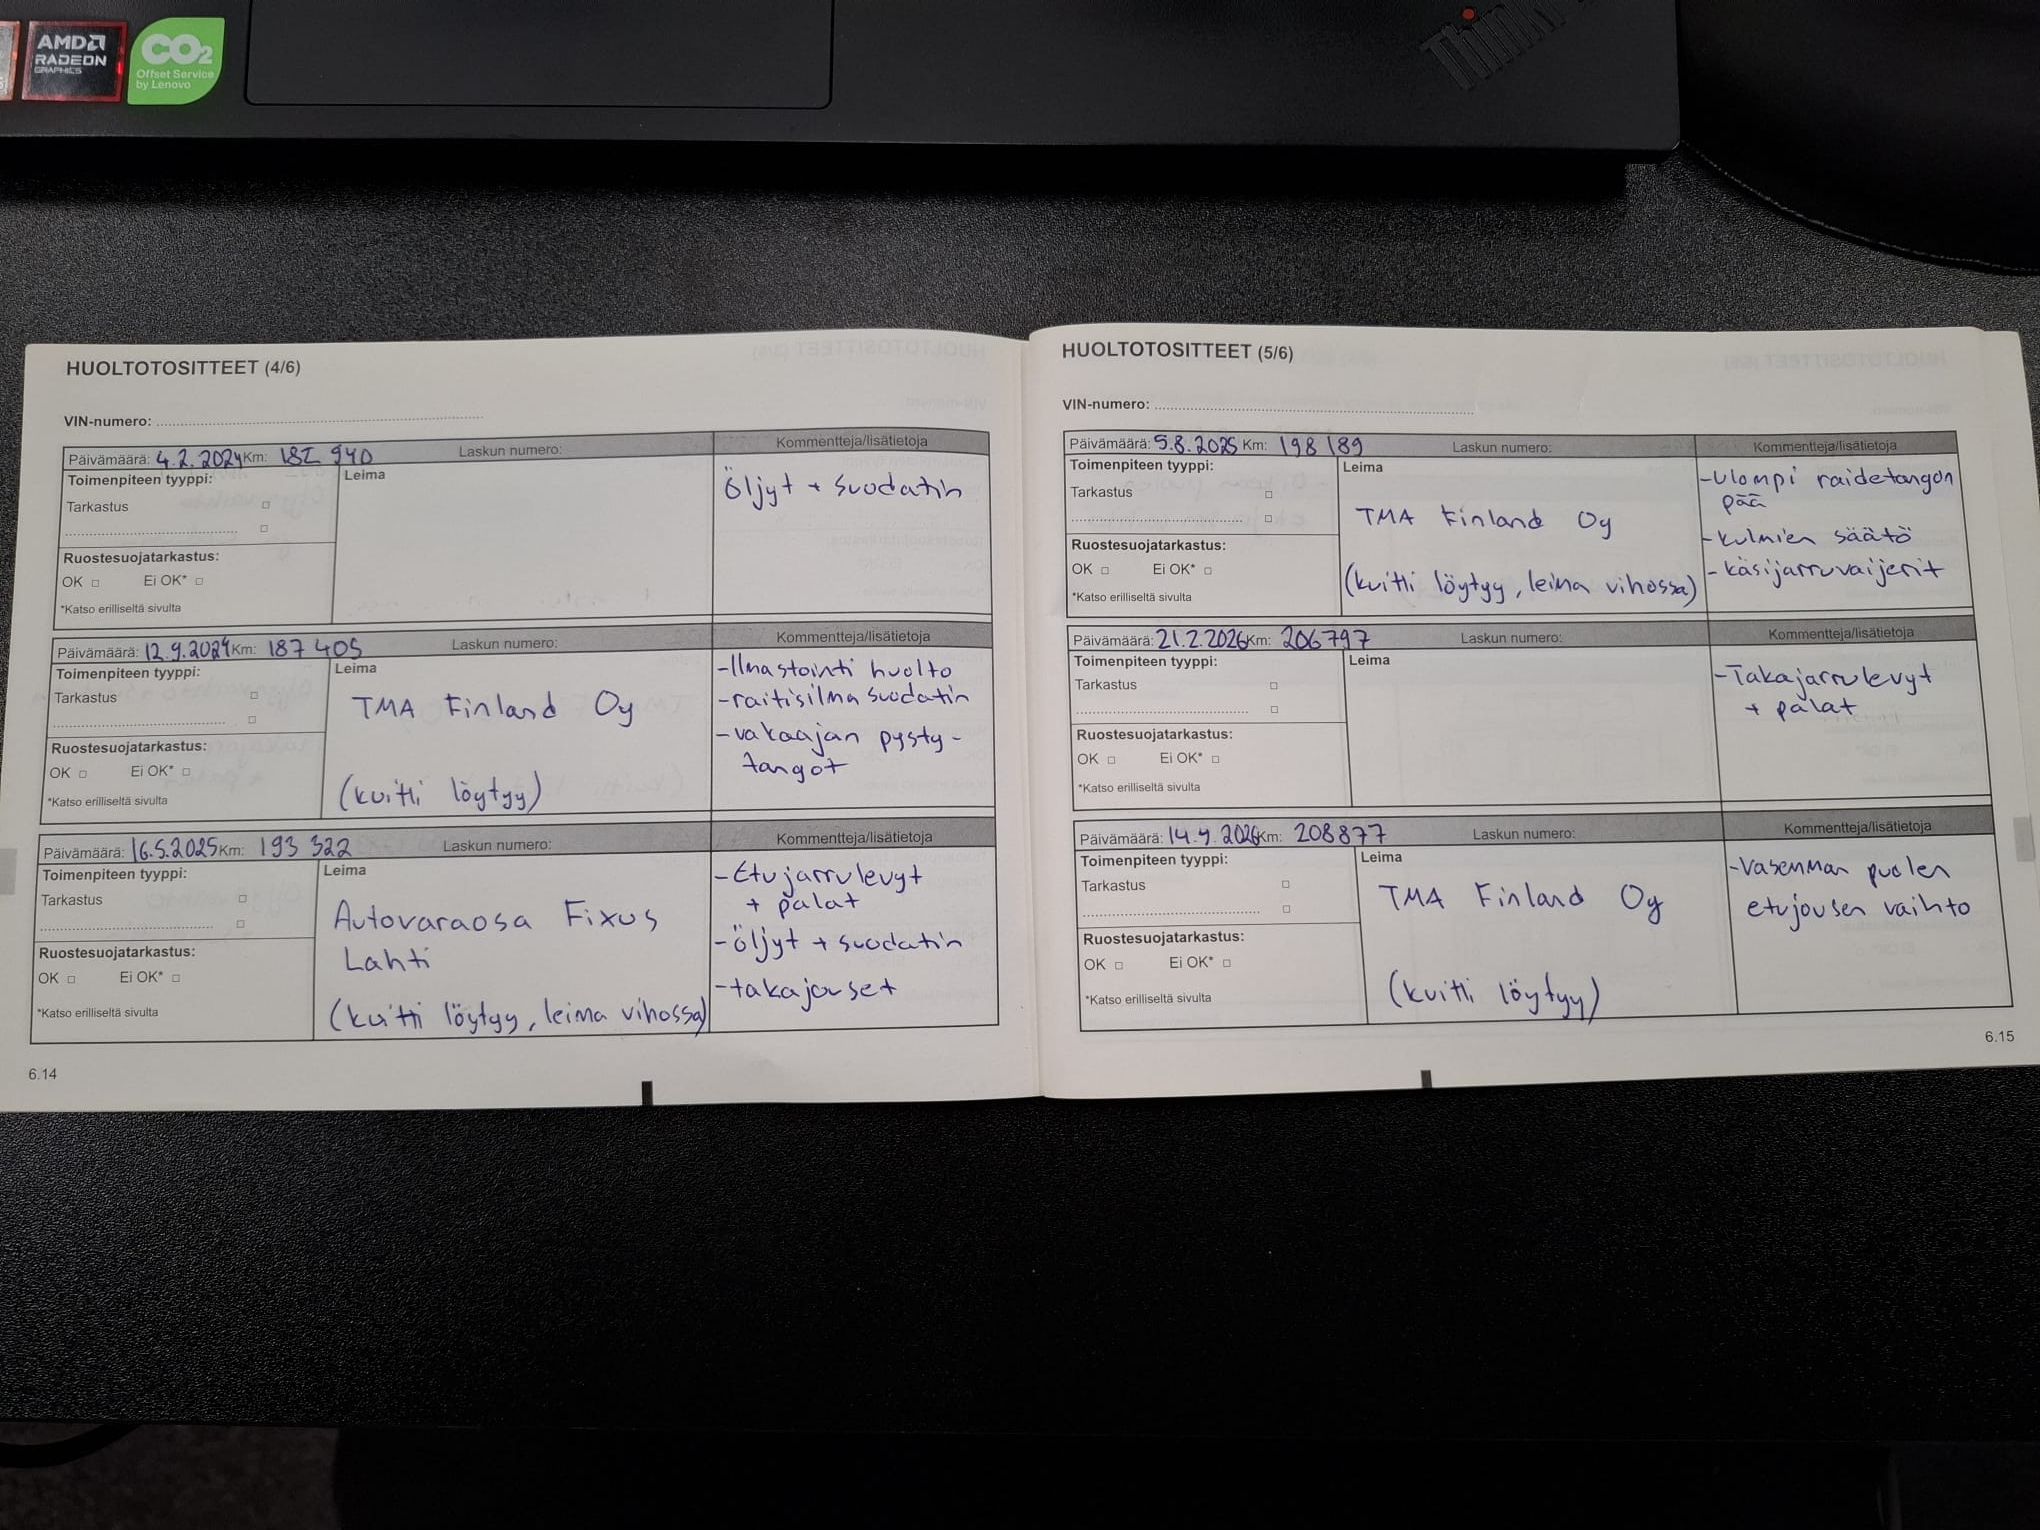 AMD
RADEON
GRAPHICS
CO2
Offset Service
by Lenovo
HUOLTOTOSITTEET (4/6)
VIN-numero:
Päivämäärä: 4.2.2024 Km: 181 940 Laskun numero: Kommentteja/lisätietoja
Toimenpiteen tyyppi: Leima
Tarkastus
öljyt + suodatin
Ruostesuojatarkastus:
OK Ei OK*
*Katso erilliseltä sivulta
Päivämäärä: 12.9.2024 Km: 187 405 Laskun numero: Kommentteja/lisätietoja
Toimenpiteen tyyppi: Leima
Tarkastus
TMA Finland Oy
(kuitti löytyy)
-Ilmastointi huolto
-raitisilma suodatin
-vakaajan pysty-
tangot
Ruostesuojatarkastus:
OK Ei OK*
*Katso erilliseltä sivulta
Päivämäärä: 16.5.2025 Km: 193 322 Laskun numero: Kommentteja/lisätietoja
Toimenpiteen tyyppi: Leima
Tarkastus
Autovaraosa Fixus
Lahti
(kuitti löytyy, leima vihossa)
-Etujarrulevyt
+ palat
-öljyt + suodatin
-takajouset
Ruostesuojatarkastus:
OK Ei OK*
*Katso erilliseltä sivulta
6.14
HUOLTOTOSITTEET (5/6)
VIN-numero:
Päivämäärä: 5.8.2025 Km: 198 189 Laskun numero: Kommentteja/lisätietoja
Toimenpiteen tyyppi: Leima
Tarkastus
TMA Finland Oy
(kuitti löytyy, leima vihossa)
-Ulompi raidetangon
pää
-kulmien säätö
-käsijarruvaijerit
Ruostesuojatarkastus:
OK Ei OK*
*Katso erilliseltä sivulta
Päivämäärä: 21.2.2026 Km: 206797 Laskun numero: Kommentteja/lisätietoja
Toimenpiteen tyyppi: Leima
Tarkastus
-Takajarrulevyt
+ palat
Ruostesuojatarkastus:
OK Ei OK*
*Katso erilliseltä sivulta
Päivämäärä: Km: 208877 Laskun numero: Kommentteja/lisätietoja
Toimenpiteen tyyppi: Leima
Tarkastus
TMA Finland Oy
(kuitti löytyy)
-Vasemman puolen
etujousen vaihto
Ruostesuojatarkastus:
OK Ei OK*
*Katso erilliseltä sivulta
6.15